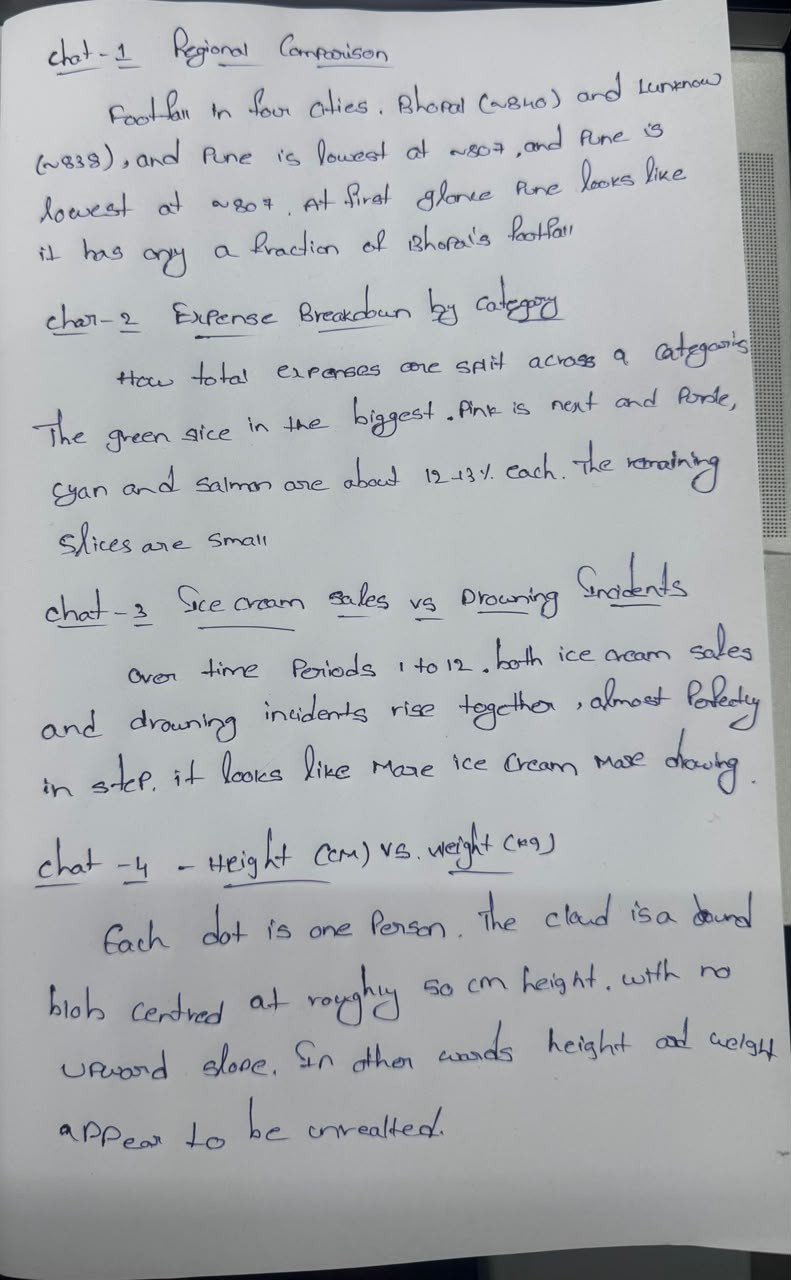 chat - 1 Regional Comparison
Footfall in four cities. Bhopal (~840) and Lunknow
(~838), and Pune is lowest at ~807, and Pune is
lowest at ~807. At first glance Pune looks like
it has ony a fraction of Bhopal's footfall
char-2 Expense Breakdown by Category
How total expenses are split across 9 categoris
The green sice in the biggest. Pink is next and Purple,
cyan and Salmon are about 12-13% each. The remaining
Slices are small
chat - 3 Ice cream sales vs Drowning Incidents
Over time Periods 1 to 12. both ice cream sales
and drowning incidents rise together, almost Perfectly
in step. it looks like More ice Cream More drowing.
chat -4 - Height (CM) VS. weight (kg)
Each dot is one Person. The cloud is a
blob centred at roughly 50 cm height. with no
upward slope. In other words height and weight
appear to be unrealted.